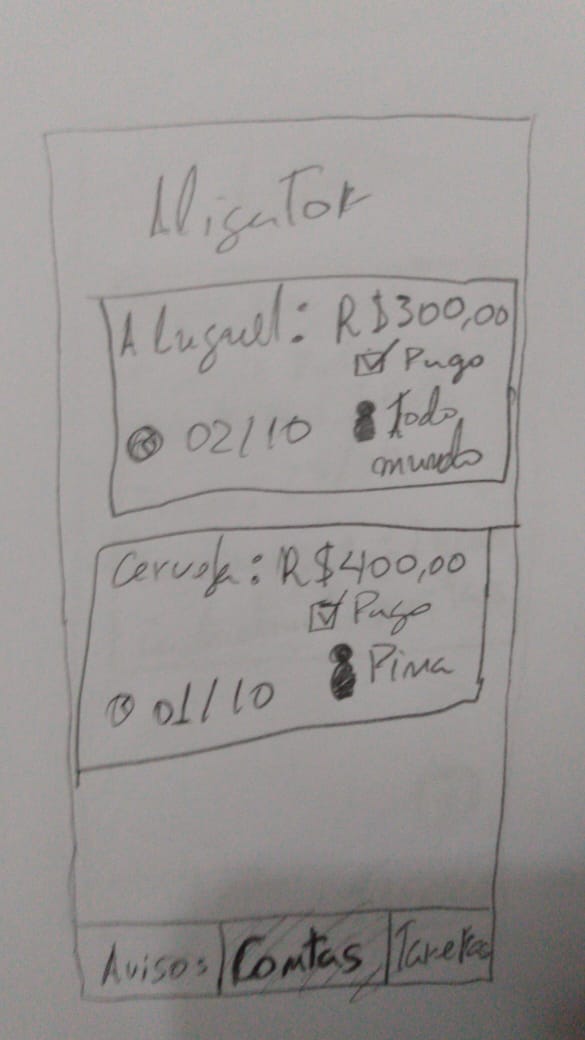 Aligator
Aluguel: R$300,00
Pago
02/10 Todo
mundo
Cerveja: R$400,00
Pago
Pima
01/10
Avisos Contas Tarefas